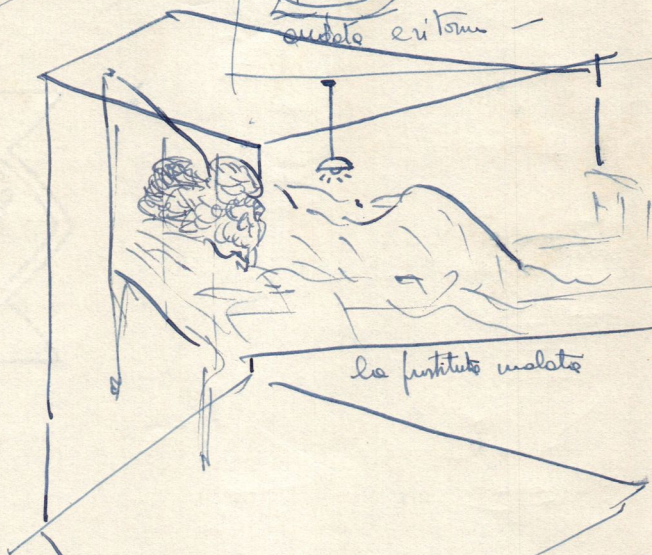 andata e ritorno -
la prostituta malata